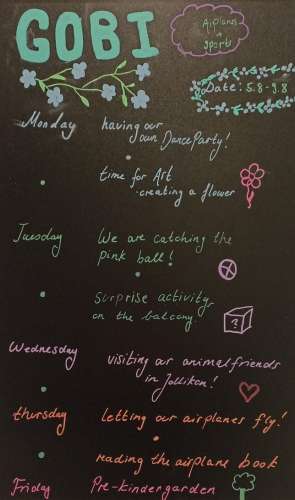 GOBI
Airplanes
+
Sports
Date: 5.8-9.8
Monday having our
own Dance Party!
time for Art
creating a flower
Tuesday We are catching the
pink ball!
surprise activity
on the balcony
?
Wednesday visiting our animal friends
in Zollikon!
Thursday letting our airplanes fly!
reading the airplane book
Friday Pre-kindergarden